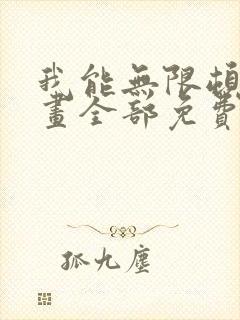 我能無限頓
畫全部免費
孤九塵